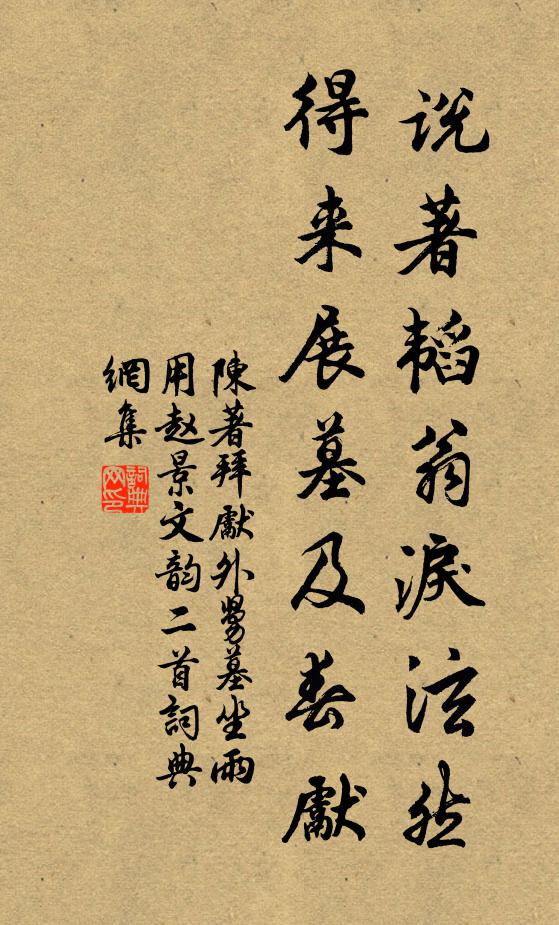 说著韬翁淚泫然
得来展墓及春獻
陳著拜獻外舅墓坐雨
用赵景文韵二首詞典
網集
詞典
网印